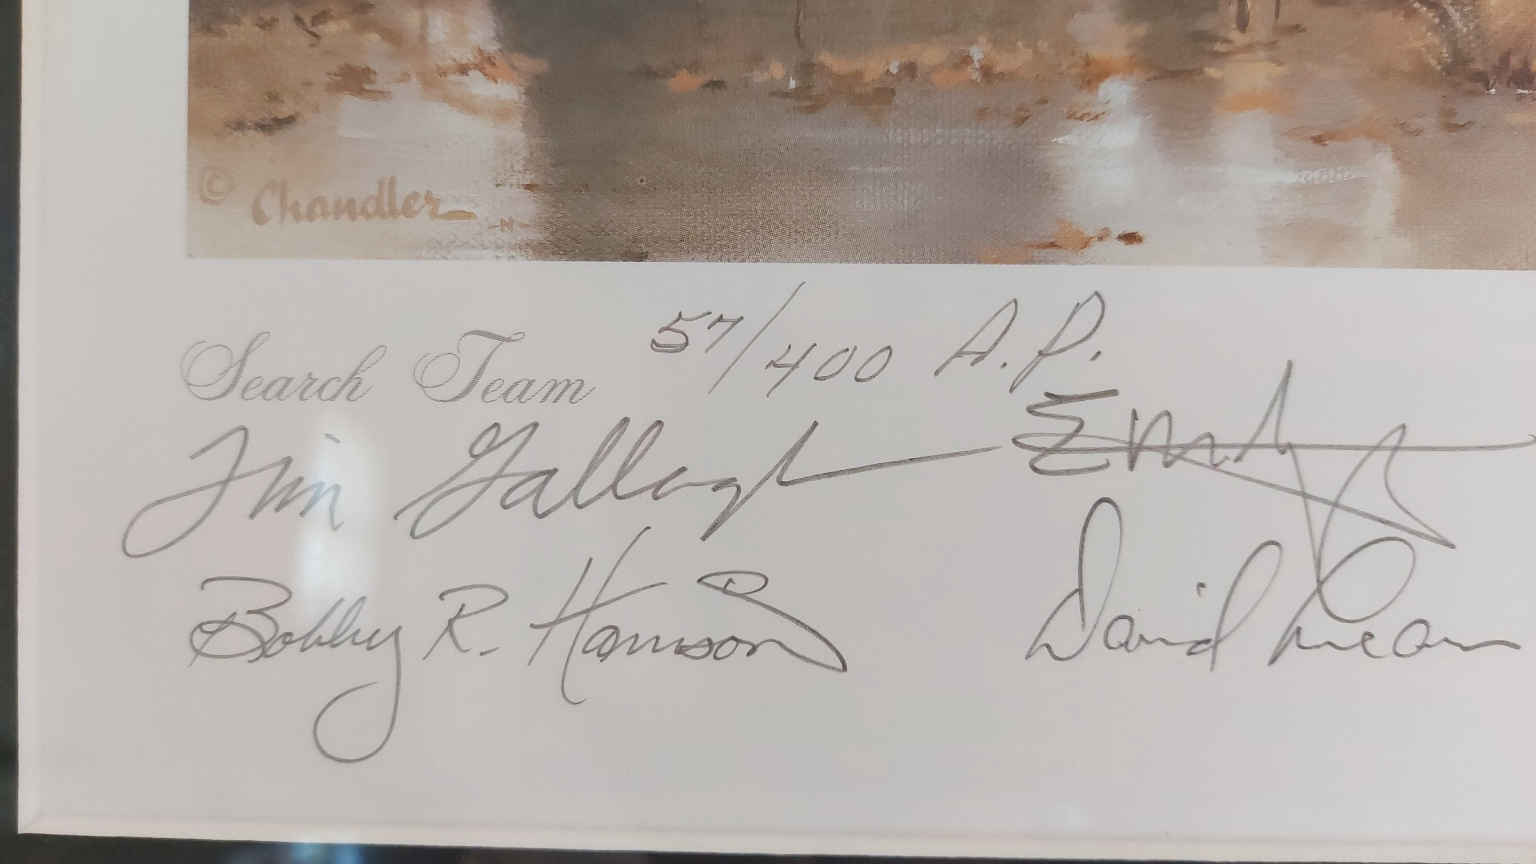 © Chandler
Search Team 57/400 A.P.
Tim Gallagher
Bobby R. Harrison David Luneau